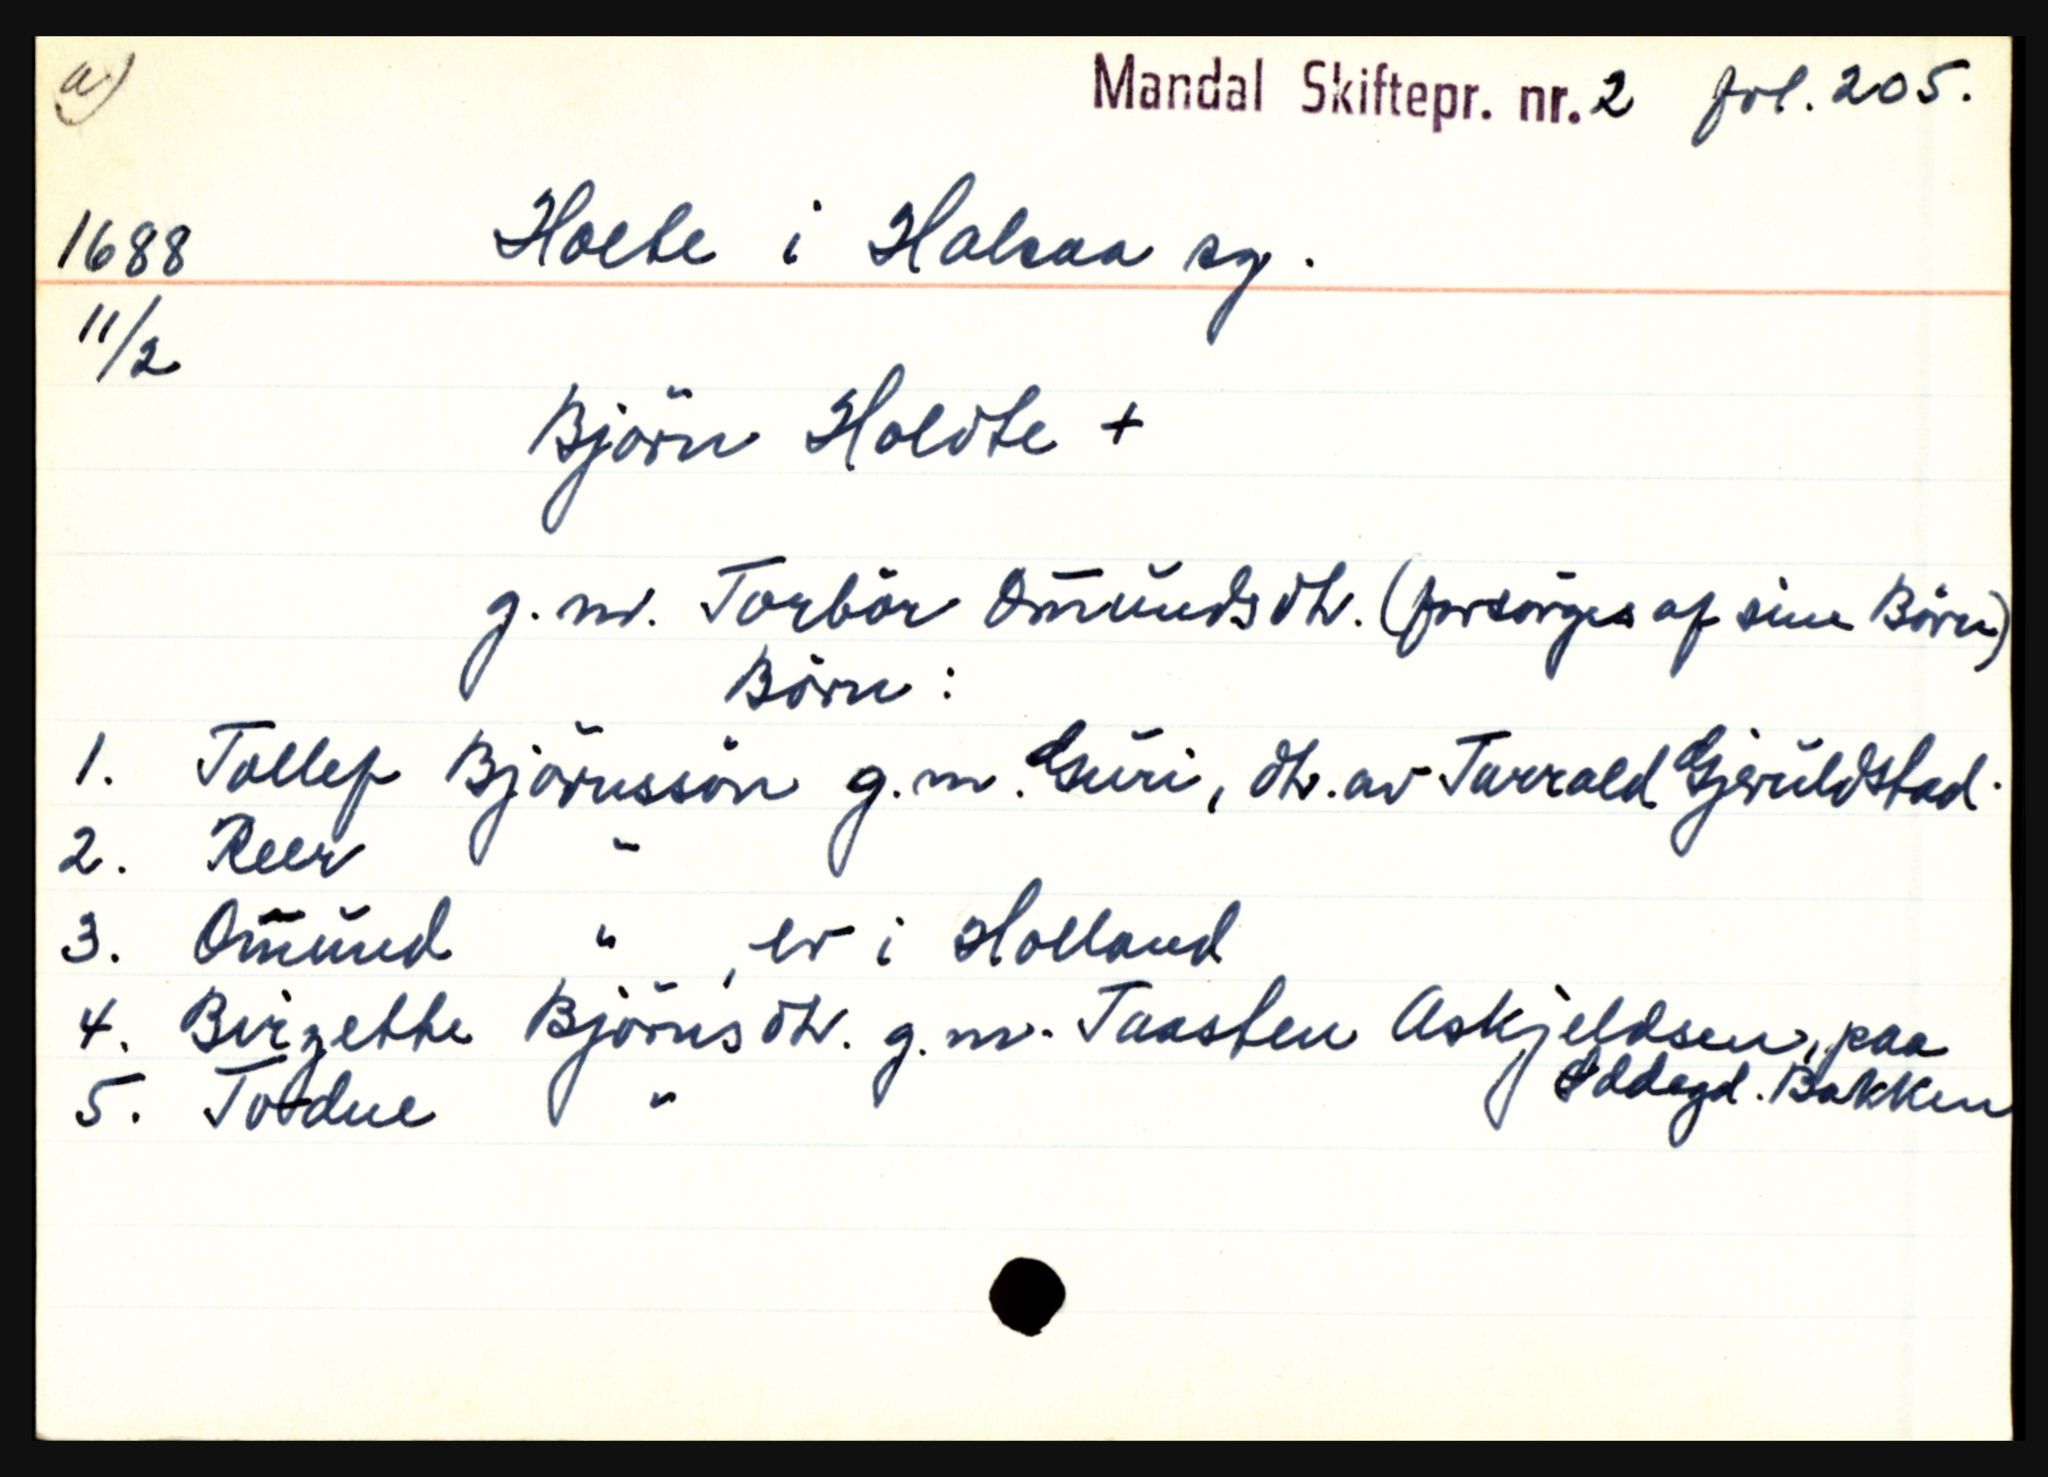 a)
Mandal Skiftepr. nr. 2 fol. 205.
1688 Holte i Halsaa sg.
11/2
Björn Holdte +
g. m. Torbör Om̄undsdtr. (forsörges af sine Börn)
Börn :
1. Tollef Björnssön g. m. Guri, dtr. av Tarrald Gjeruldstad.
2. Reer "
3. Om̄und " , er i Holland
4. Birgette Björnsdtr. g. m. Taasten Askjeldsen, paa
Oddegd. Bakken
5. Todne "